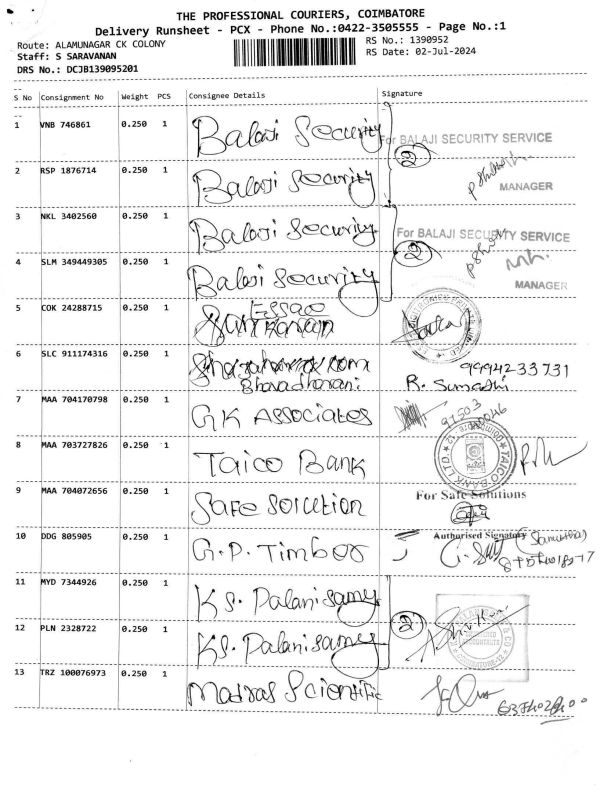 THE PROFESSIONAL COURIERS, COIMBATORE
Delivery Runsheet - PCX - Phone No.:0422-3505555 - Page No.:1
Route: ALAMUNAGAR CK COLONY
RS No.: 1390952
Staff: S SARAVANAN
RS Date: 02-Jul-2024
DRS No.: DCJB139095201
S No Consignment No Weight PCS Consignee Details Signature
1 VNB 746861 0.250 1 Balaji Security
For BALAJI SECURITY SERVICE
2
2 RSP 1876714 0.250 1 Balaji Security
MANAGER
3 NKL 3402560 0.250 1 Balaji Security
For BALAJI SECURITY SERVICE
2
4 SLM 349449305 0.250 1 Balaji Security
MANAGER
5 COK 24288715 0.250 1 ESSAE
6 SLC 911174316 0.250 1
Bharadharani
9994233731
R. Sumathi
7 MAA 704170798 0.250 1 GK ASSociates
97503
8 MAA 703727826 0.250 1 Taico Bank
TAICO BANK LTD.
9 MAA 704072656 0.250 1 Safe Solution
For Safe Solutions
Authorised Signatory
10 DDG 805905 0.250 1 G.P. Timber
11 MYD 7344926 0.250 1 KS. Palanisamy
2
12 PLN 2328722 0.250 1 KS. Palanisamy
13 TRZ 100076973 0.250 1 Madras Scientific